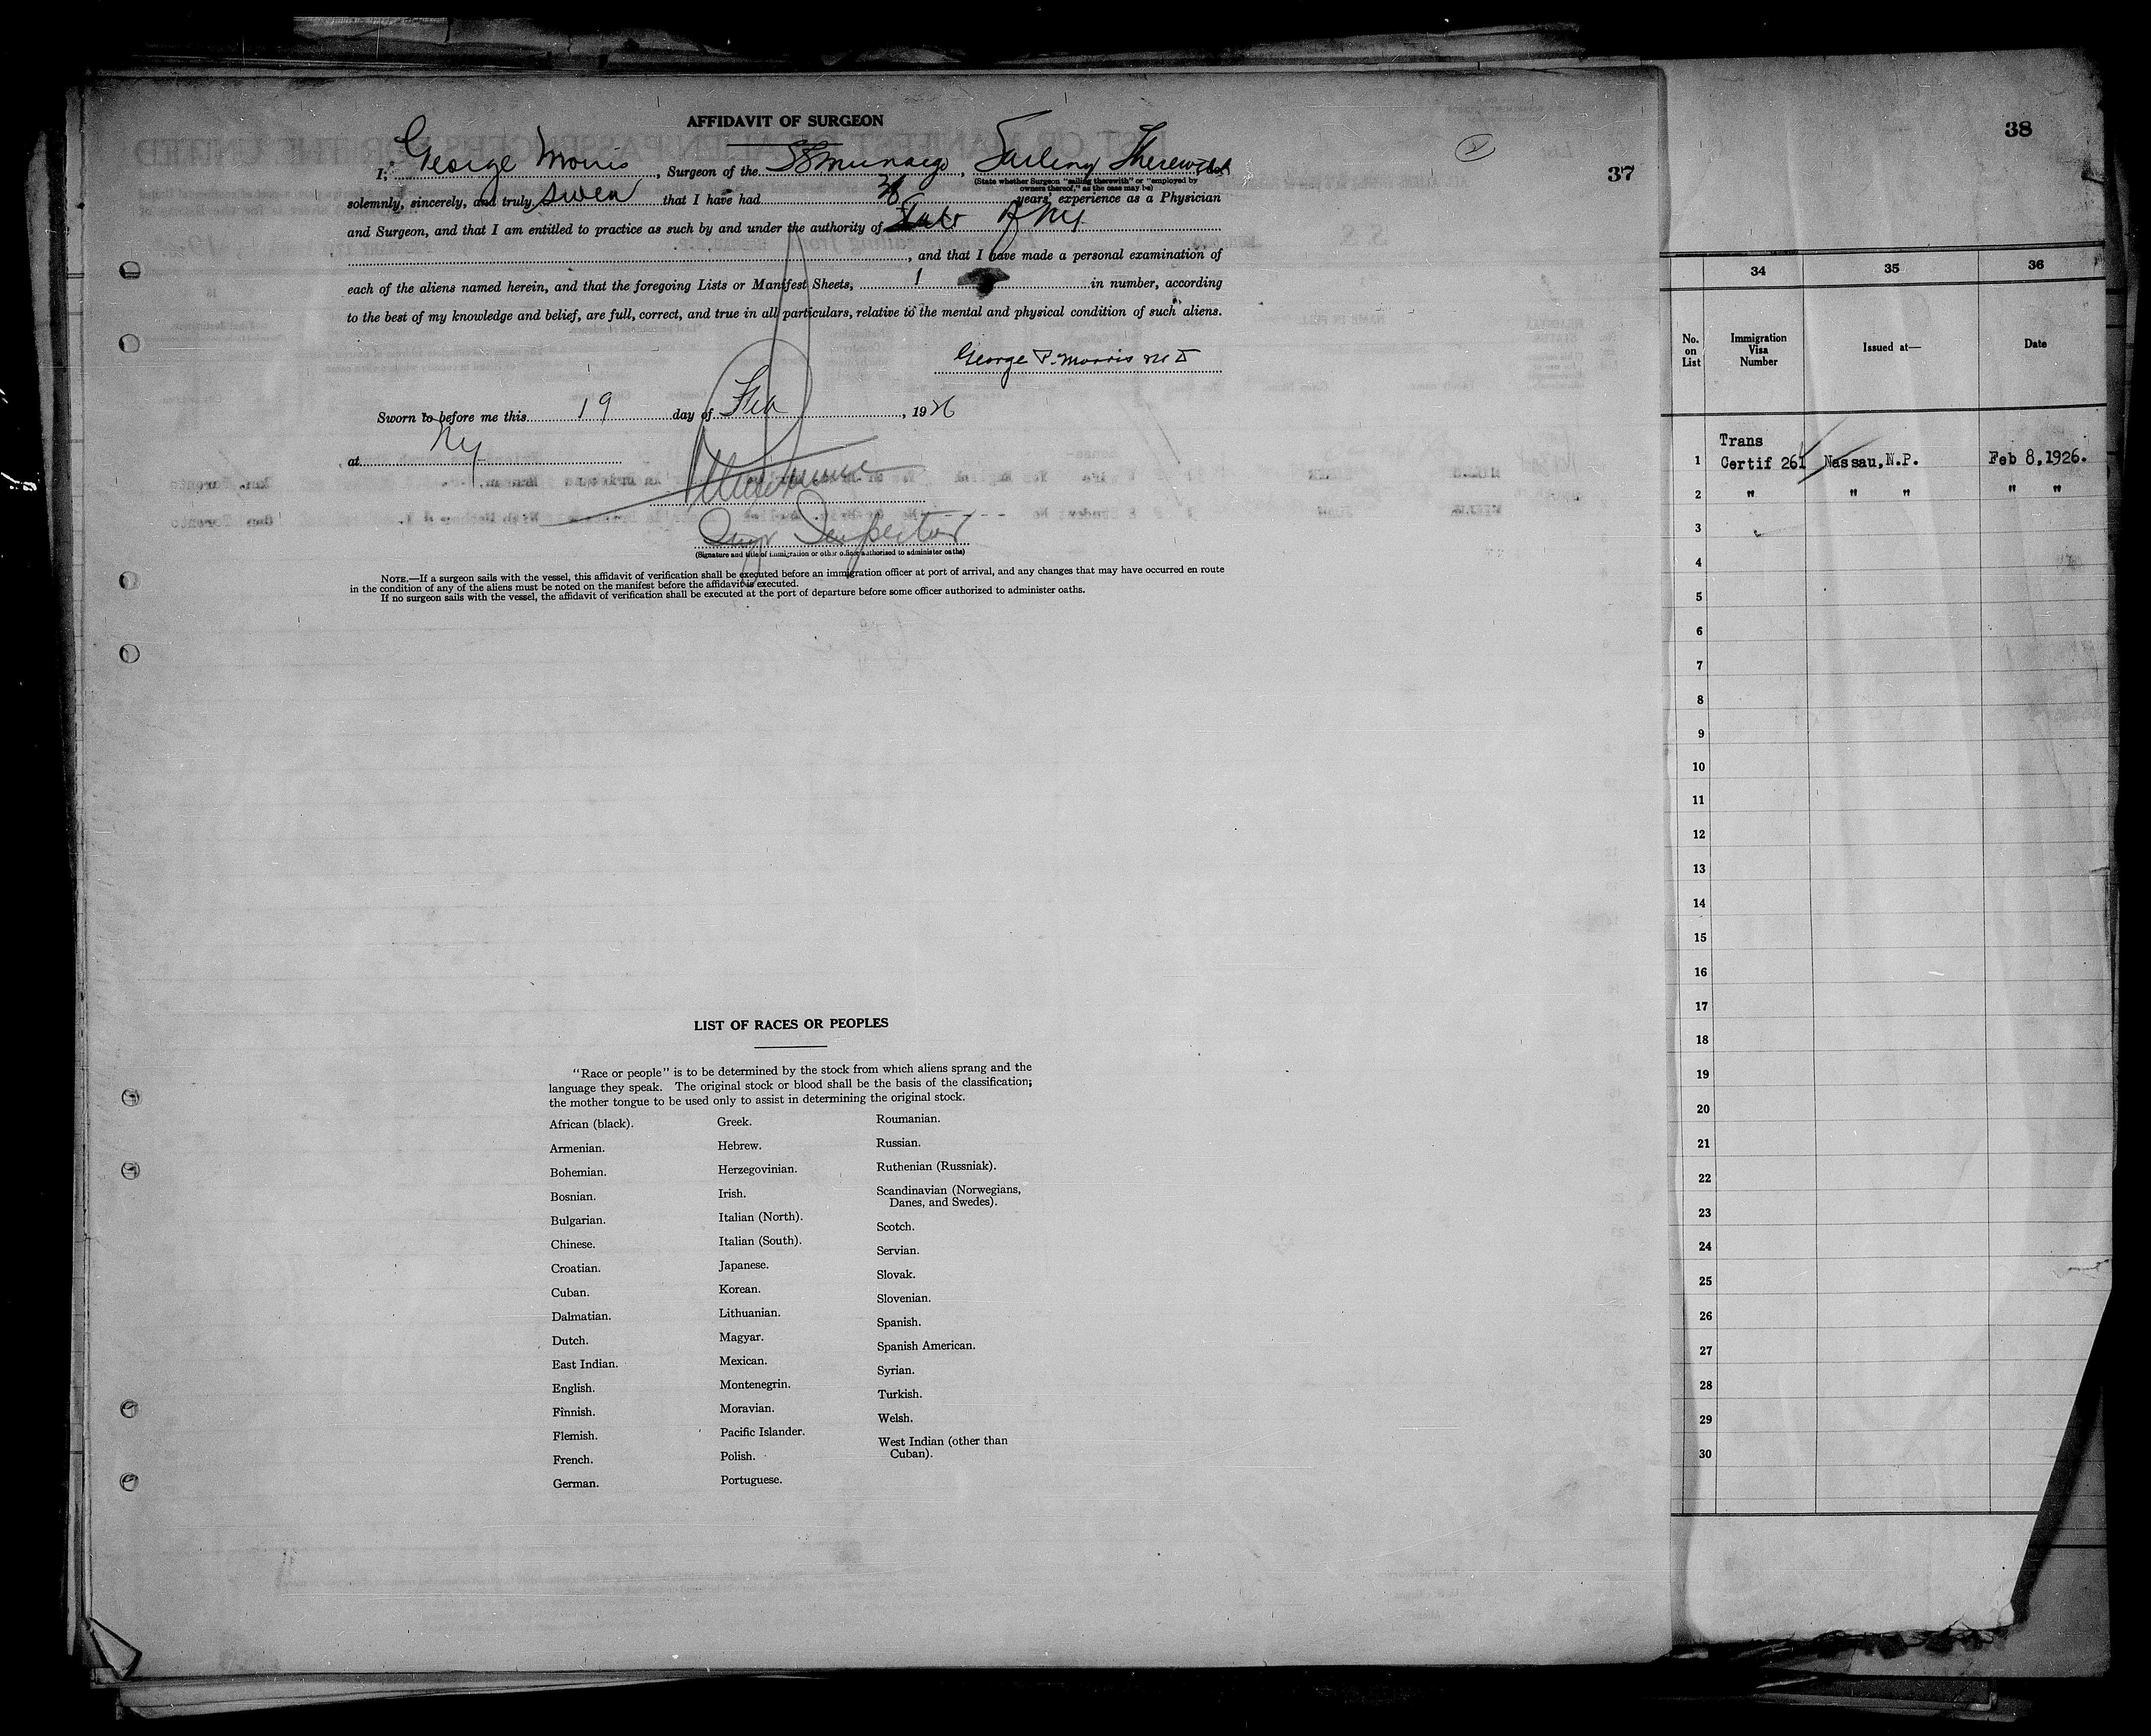 AFFIDAVIT OF SURGEON
I, George Morris, Surgeon of the SS Munargo, Sailing Therewith do
(State whether Surgeon "sailing therewith" or "employed by
owners thereof," as the case may be)
solemnly, sincerely, and truly swear that I have had years' experience as a Physician
and Surgeon, and that I am entitled to practice as such by and under the authority of State of NY
, and that I have made a personal examination of
each of the aliens named herein, and that the foregoing Lists or Manifest Sheets, 1 in number, according
to the best of my knowledge and belief, are full, correct, and true in all particulars, relative to the mental and physical condition of such aliens.
George P. Morris MD
Sworn to before me this 19 day of Feb, 1926
at NY
Immgr Inspector
(Signature and title of immigration or other officer authorized to administer oaths)
NOTE.—If a surgeon sails with the vessel, this affidavit of verification shall be executed before an immigration officer at port of arrival, and any changes that may have occurred en route
in the condition of any of the aliens must be noted on the manifest before the affidavit is executed.
If no surgeon sails with the vessel, the affidavit of verification shall be executed at the port of departure before some officer authorized to administer oaths.
LIST OF RACES OR PEOPLES
"Race or people" is to be determined by the stock from which aliens sprang and the
language they speak. The original stock or blood shall be the basis of the classification;
the mother tongue to be used only to assist in determining the original stock.
African (black).
Armenian.
Bohemian.
Bosnian.
Bulgarian.
Chinese.
Croatian.
Cuban.
Dalmatian.
Dutch.
East Indian.
English.
Finnish.
Flemish.
French.
German.
Greek.
Hebrew.
Herzegovinian.
Irish.
Italian (North).
Italian (South).
Japanese.
Korean.
Lithuanian.
Magyar.
Mexican.
Montenegrin.
Moravian.
Pacific Islander.
Polish.
Portuguese.
Roumanian.
Russian.
Ruthenian (Russniak).
Scandinavian (Norwegians,
Danes, and Swedes).
Scotch.
Servian.
Slovak.
Slovenian.
Spanish.
Spanish American.
Syrian.
Turkish.
Welsh.
West Indian (other than
Cuban).
37
38
34 35 36
No.
on
List
Immigration
Visa
Number
Issued at—
Date
Trans
1 Certif 261 Nassau, N.P. Feb 8, 1926.
2 " " " " "
3
4
5
6
7
8
9
10
11
12
13
14
15
16
17
18
19
20
21
22
23
24
25
26
27
28
29
30